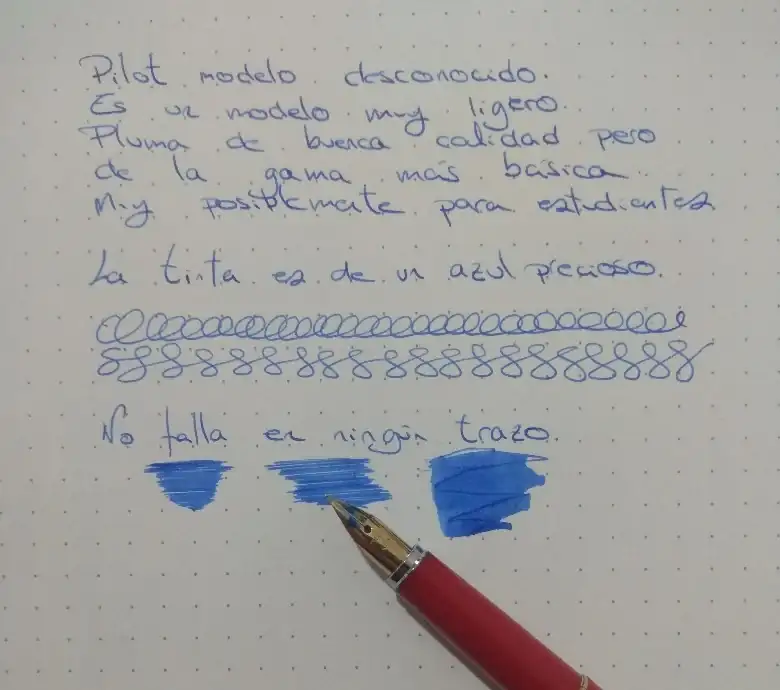 Pilot modelo desconocido.
Es un modelo muy ligero.
Pluma de buena calidad pero
de la gama más básica
Muy posiblemente para estudiantes
La tinta es de un azul precioso.
No falla en ningún trazo.